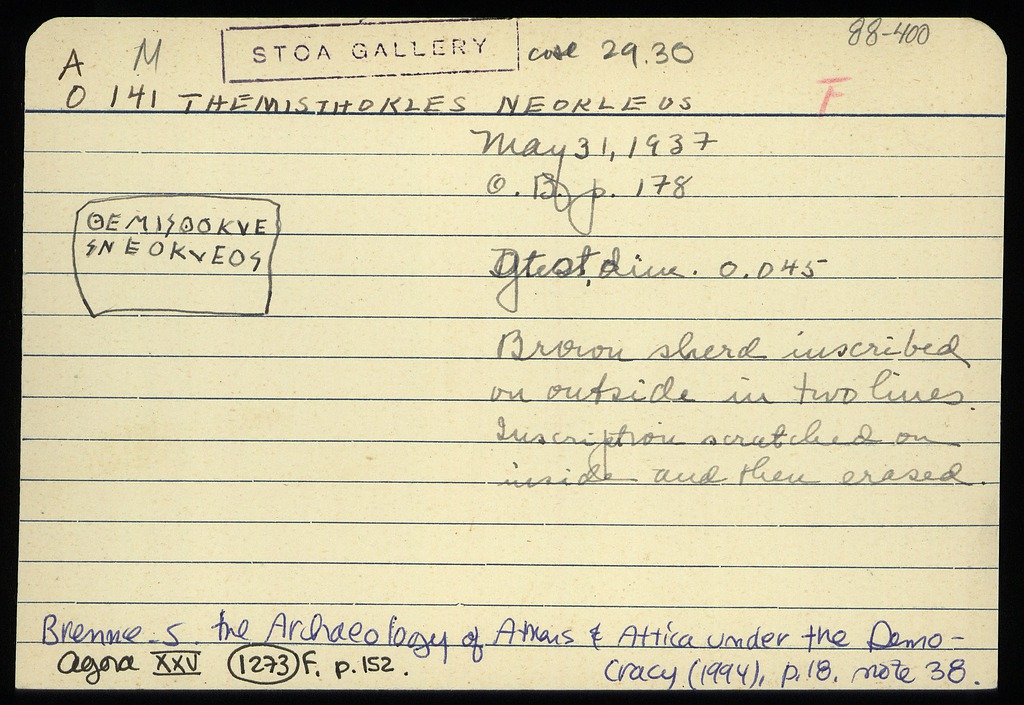 A M STOA GALLERY case 29.30 88-400
O 141 THEMISTHOKLES NEOKLEOS F
May 31, 1937
O. B. p. 178
ΘEMISΘOKVE
SNEOKVEOS
Gtest. dim. 0.045
Brown sherd inscribed
on outside in two lines.
Inscription scratched on
inside and then erased.
Brenne S. the Archaeology of Athens & Attica under the Demo-
cracy (1994), p.18, note 38.
Agora XXV 1273 F. p.152.